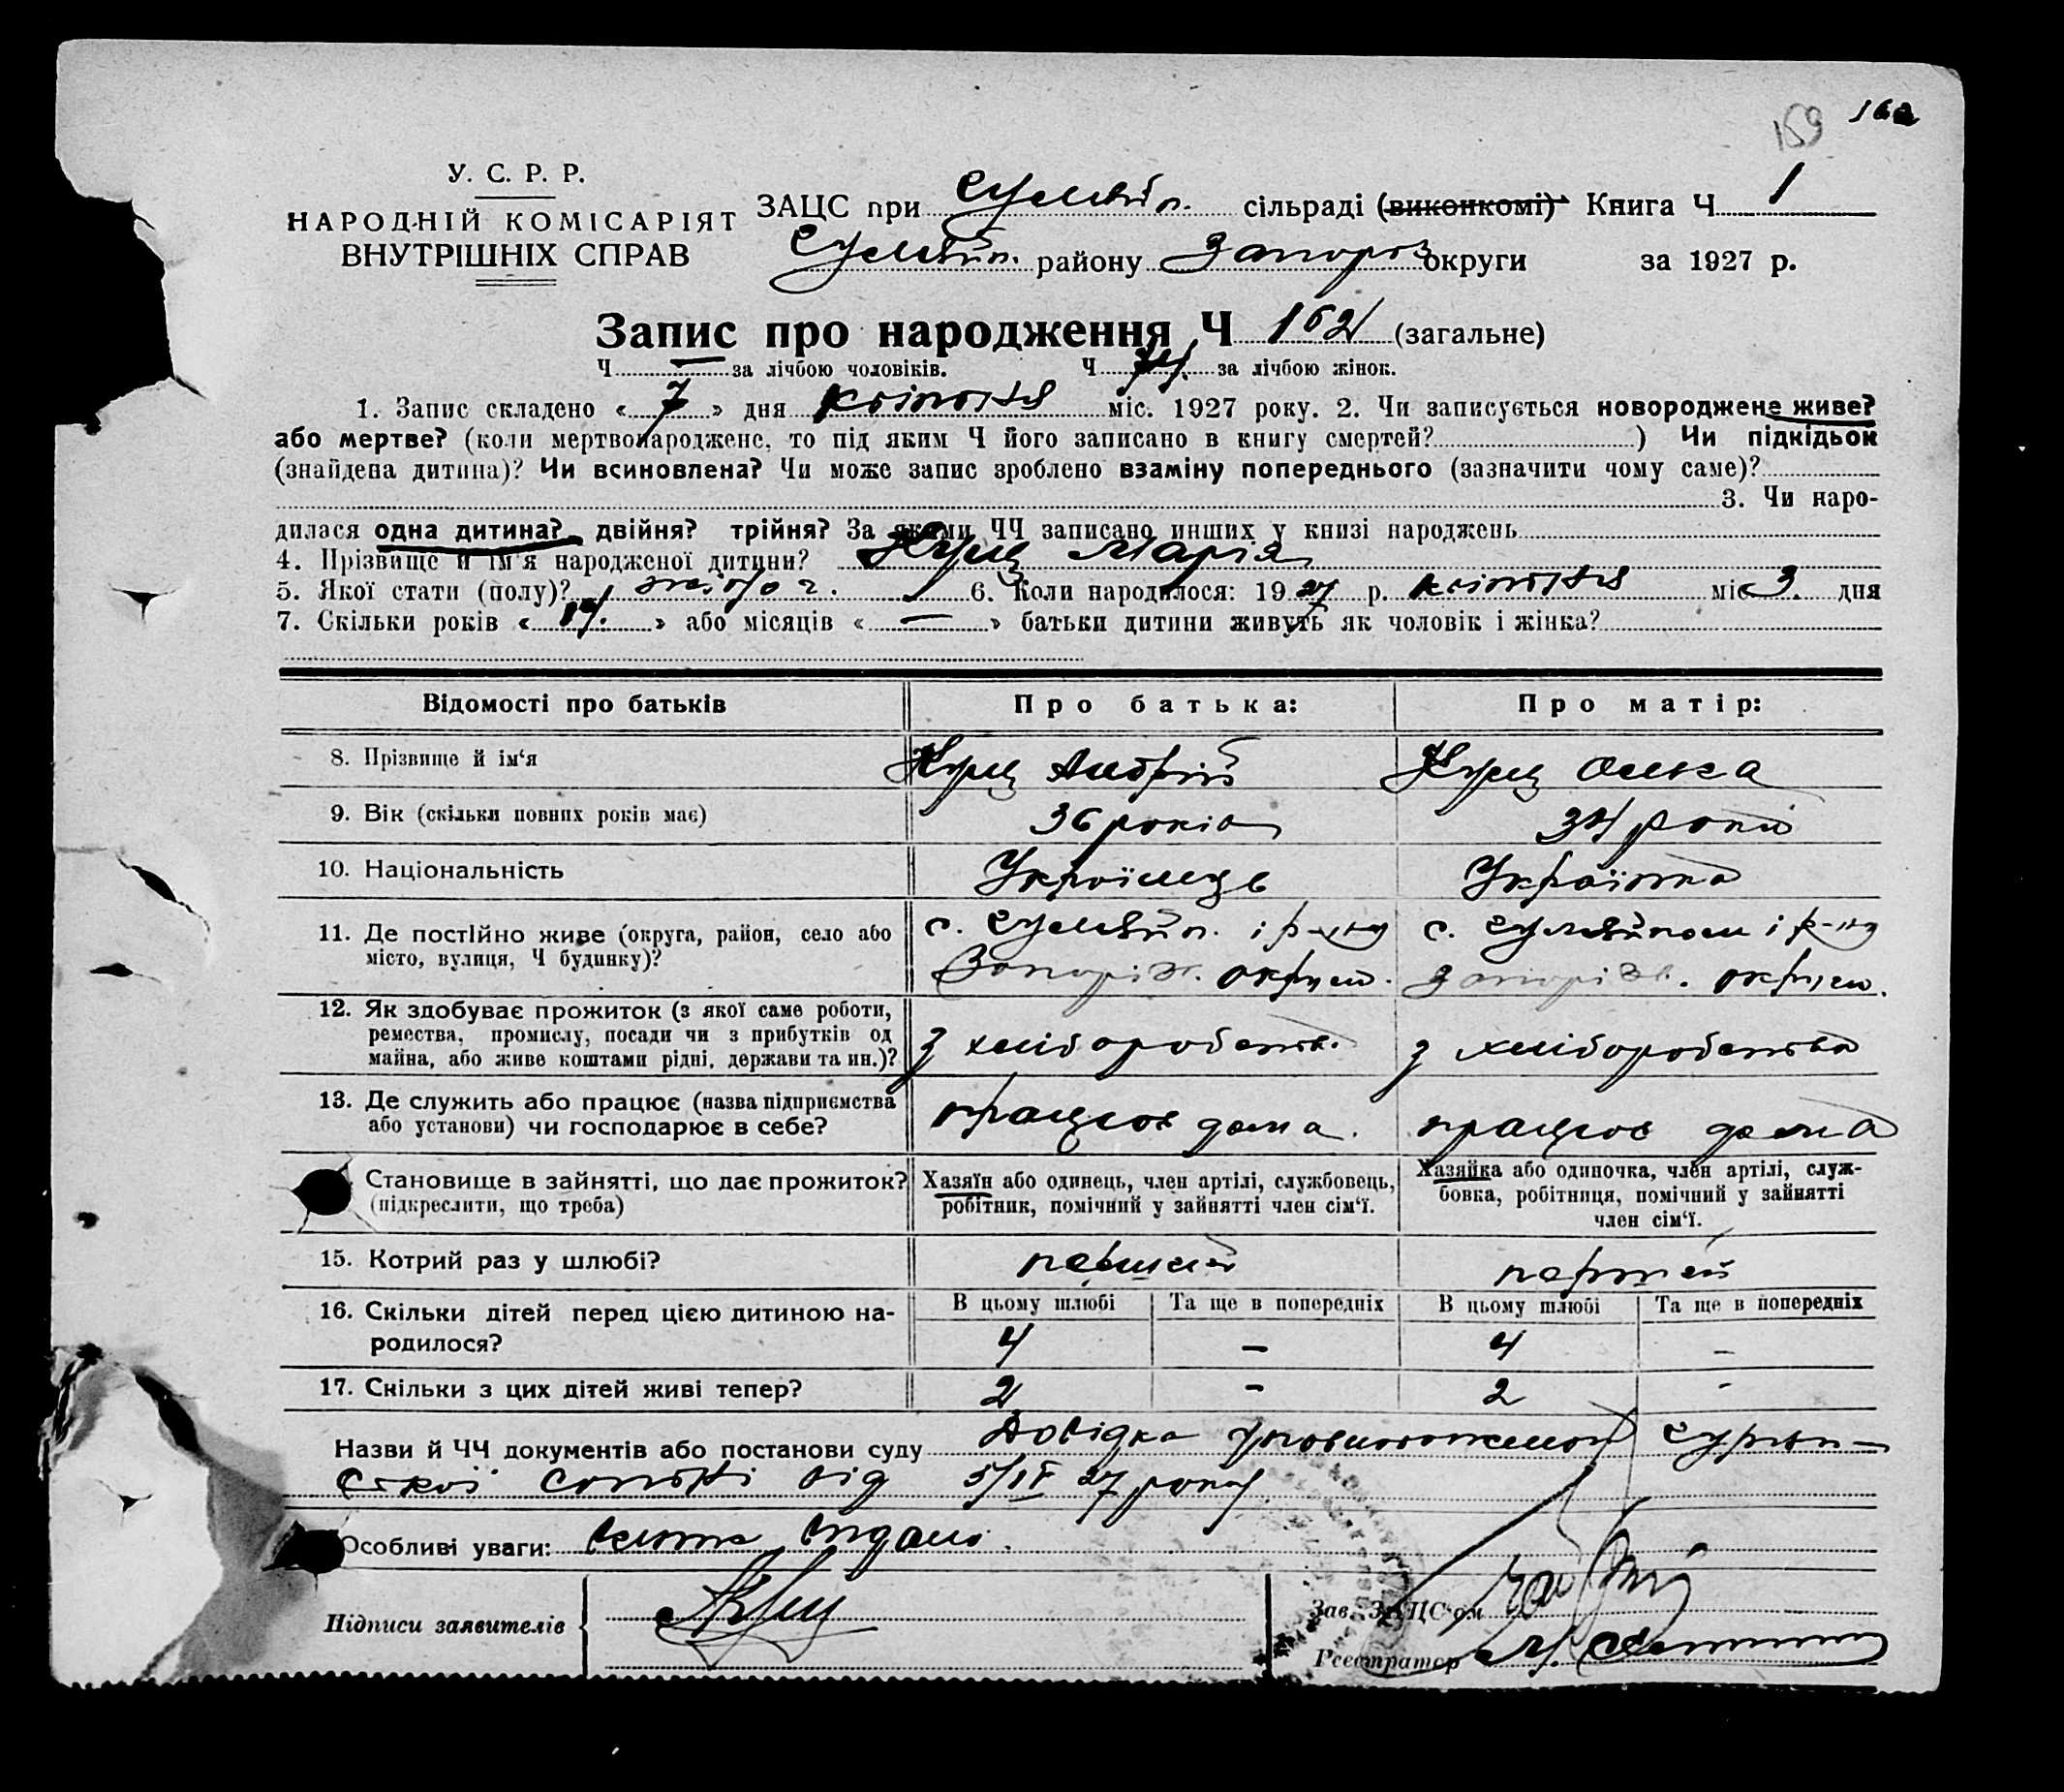 159 162
У. С. Р. Р.
НАРОДНІЙ КОМІСАРІЯТ
ВНУТРІШНІХ СПРАВ
ЗАЦС при сільраді (виконкомі) Книга Ч 1
району Запоріз округи за 1927 р.
Запис про народження Ч 162 (загальне)
Ч — за лічбою чоловіків. Ч 74. за лічбою жінок.
1. Запис складено « 7 » дня квітня міс. 1927 року. 2. Чи записується новороджене живе?
або мертве? (коли мертвонароджене, то під яким Ч його записано в книгу смертей? ) Чи підкідьок
(знайдена дитина)? Чи всиновлена? Чи може запис зроблено взаміну попереднього (зазначити чому саме)?
3. Чи наро-
дилася одна дитина? двійня? трійня? За якими ЧЧ записано инших у книзі народжень
4. Прізвище й ім'я народженої дитини? Куц Марія
5. Якої стати (полу)? жіноч. 6. Коли народилося: 1927 р. квітня міс 3. дня
7. Скільки років « 14. » або місяців « — » батьки дитини живуть як чоловік і жінка?
Відомості про батьків Про батька: Про матір:
8. Прізвище й ім'я Куц Андрій Куц Олька
9. Вік (скільки повних років має) 36 років 34 роки
10. Національність Українець Українка
11. Де постійно живе (округа, район, село або
місто, вулиця, Ч будинку)?
с. і р-ну с. і р-ну
Запоріж. округи. Запоріж. округи.
12. Як здобуває прожиток (з якої саме роботи,
ремества, промислу, посади чи з прибутків од
майна, або живе коштами рідні, держави та ин.)?
з хліборобств. з хліборобства
13. Де служить або працює (назва підприємства
або установи) чи господарює в себе?
працює дома. працює дома
Становище в зайнятті, що дає прожиток?
(підкреслити, що треба)
Хазяїн або одинець, член артілі, службовець,
робітник, помічний у зайнятті член сім'ї.
Хазяйка або одиночка, член артілі, служ-
бовка, робітниця, помічний у зайнятті
член сім'ї.
15. Котрий раз у шлюбі? перший перший
16. Скільки дітей перед цією дитиною на-
родилося?
В цьому шлюбі Та ще в попередніх В цьому шлюбі Та ще в попередніх
4 — 4 —
17. Скільки з цих дітей живі тепер? 2 - 2 -
Назви й ЧЧ документів або постанови суду Довідка уповноваженого
ської сотні від 5/IV 27 року
Особливі уваги: видано.
Підписи заявителів АКуц
Зав. ЗАЦС'ом
Реєстратор